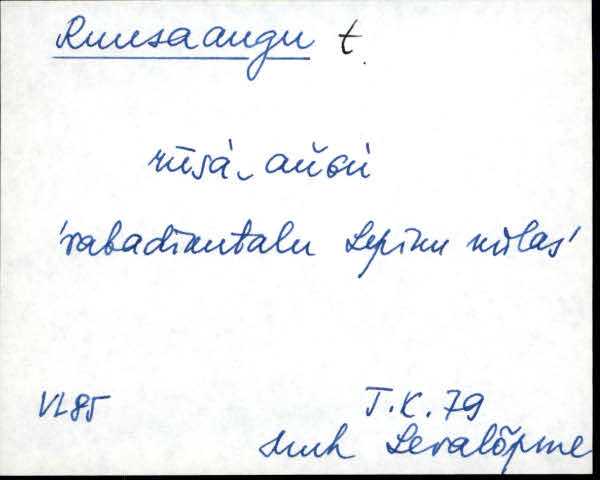 Ruusaaugu t.
rūsà‿aŭɢù
'vabadikutalu Lepiku külas'
VL85 T.K. 79
Muh Levalõpme